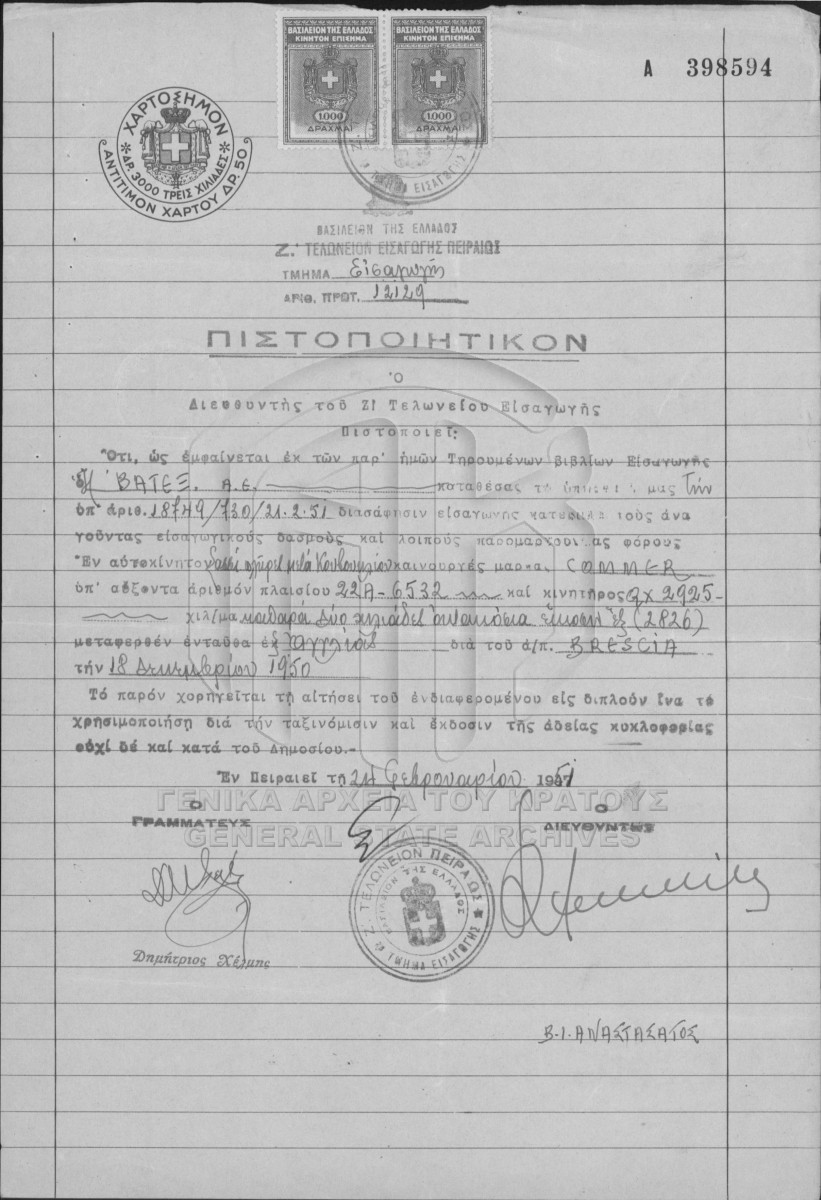 ΒΑΣΙΛΕΙΟΝ ΤΗΣ ΕΛΛΑΔΟΣ
ΚΙΝΗΤΟΝ ΕΠΙΣΗΜΑ
1000
ΔΡΑΧΜΑΙ
ΒΑΣΙΛΕΙΟΝ ΤΗΣ ΕΛΛΑΔΟΣ
ΚΙΝΗΤΟΝ ΕΠΙΣΗΜΑ
1.000
ΔΡΑΧΜΑΙ
ΤΜΗΜΑ ΕΙΣΑΓΩΓΗΣ
Α 398594
ΧΑΡΤΟΣΗΜΟΝ
ΔΡ. 3000 ΤΡΕΙΣ ΧΙΛΙΑΔΕΣ
ΑΝΤΙΤΙΜΟΝ ΧΑΡΤΟΥ ΔΡ. 50
ΒΑΣΙΛΕΙΟΝ ΤΗΣ ΕΛΛΑΔΟΣ
Ζ.' ΤΕΛΩΝΕΙΟΝ ΕΙΣΑΓΩΓΗΣ ΠΕΙΡΑΙΩΣ
ΤΜΗΜΑ Εἰσαγωγῆς
ΑΡΙΘ. ΠΡΩΤ. 12129
ΠΙΣΤΟΠΟΙΗΤΙΚΟΝ
Ὁ
Διευθυντής τοῦ Ζ! Τελωνείου Εἰσαγωγῆς
Πιστοποιεῖ:
Ὅτι, ὡς ἐμφαίνεται ἐκ τῶν παρ' ἡμῶν Τηρουμένων βιβλίων Εἰσαγωγῆς
ἡ ΒΑΤΕΞ. Α.Ε. καταθέσας μας τήν
ὑπ' ἀριθ. 18749/730/21.2.51 διασάφησιν εἰσαγωγῆς κατέβαλε τούς ἀνα
γοῦντας εἰσαγωγικούς δασμούς καί λοιπούς φόρους
Ἐν αὐτοκίνητον μετά καινουργές μάρκα COMMER
ὑπ' αὔξοντα ἀριθμόν πλαισίου 22Α-6532 καί κινητῆρος 2925-
χιλ/μα καθαρά δύο χιλιάδες ὀκτακόσια εἴκοσι ἕξ (2826)
μεταφερθέν ἐνταῦθα ἐξ Ἀγγλίας διά τοῦ ἀ/π. BRESCIA
τήν 18 Δεκεμβρίου 1950
Τό παρόν χορηγεῖται τῇ αἰτήσει τοῦ ἐνδιαφερομένου εἰς διπλοῦν ἵνα τό
χρησιμοποιήσῃ διά τήν ταξινόμισιν καί ἔκδοσιν τῆς ἀδείας κυκλοφορίας
οὐχί δέ καί κατά τοῦ Δημοσίου.-
Ἐν Πειραιεῖ τῇ 24 Φεβρουαρίου 1951
ΓΕΝΙΚΑ ΑΡΧΕΙΑ ΤΟΥ ΚΡΑΤΟΥΣ
GENERAL STATE ARCHIVES
Ο
ΓΡΑΜΜΑΤΕΥΣ
Ο
ΔΙΕΥΘΥΝΤΗΣ
Ζ. ΤΕΛΩΝΕΙΟΝ ΠΕΙΡΑΙΩΣ
ΒΑΣΙΛΕΙΟΝ ΤΗΣ ΕΛΛΑΔΟΣ
ΤΜΗΜΑ ΕΙΣΑΓΩΓΗΣ
Δημήτριος Χέλμης
Β.Ι. ΑΝΑΣΤΑΣΑΤΟΣ